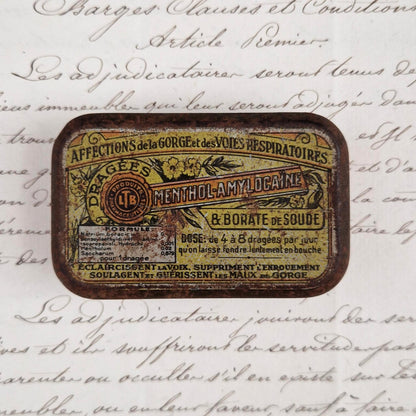 Barges Clauses et Conditions
Article Premier.
Les adjudicataires seront tenus de
AFFECTIONS de la GORGE et des VOIES RESPIRATOIRES
DRAGÉES
MENTHOL-AMYLOCAÏNE
LTB
& BORATE DE SOUDE
FORMULE
pour 1 dragée
DOSE: de 4 à 8 dragées par jour
qu'on laisse fondre lentement en bouche
ÉCLAIRCISSENT LA VOIX, SUPPRIMENT L'ENROUEMENT
SOULAGENT ET GUÉRISSENT LES MAUX DE GORGE
Les adjudicataires jouiront des ser
ives et ils souffriront les servitudes pas
apparentes ou occultes s'il en existe sur les
ou en leur faveur, sauf à